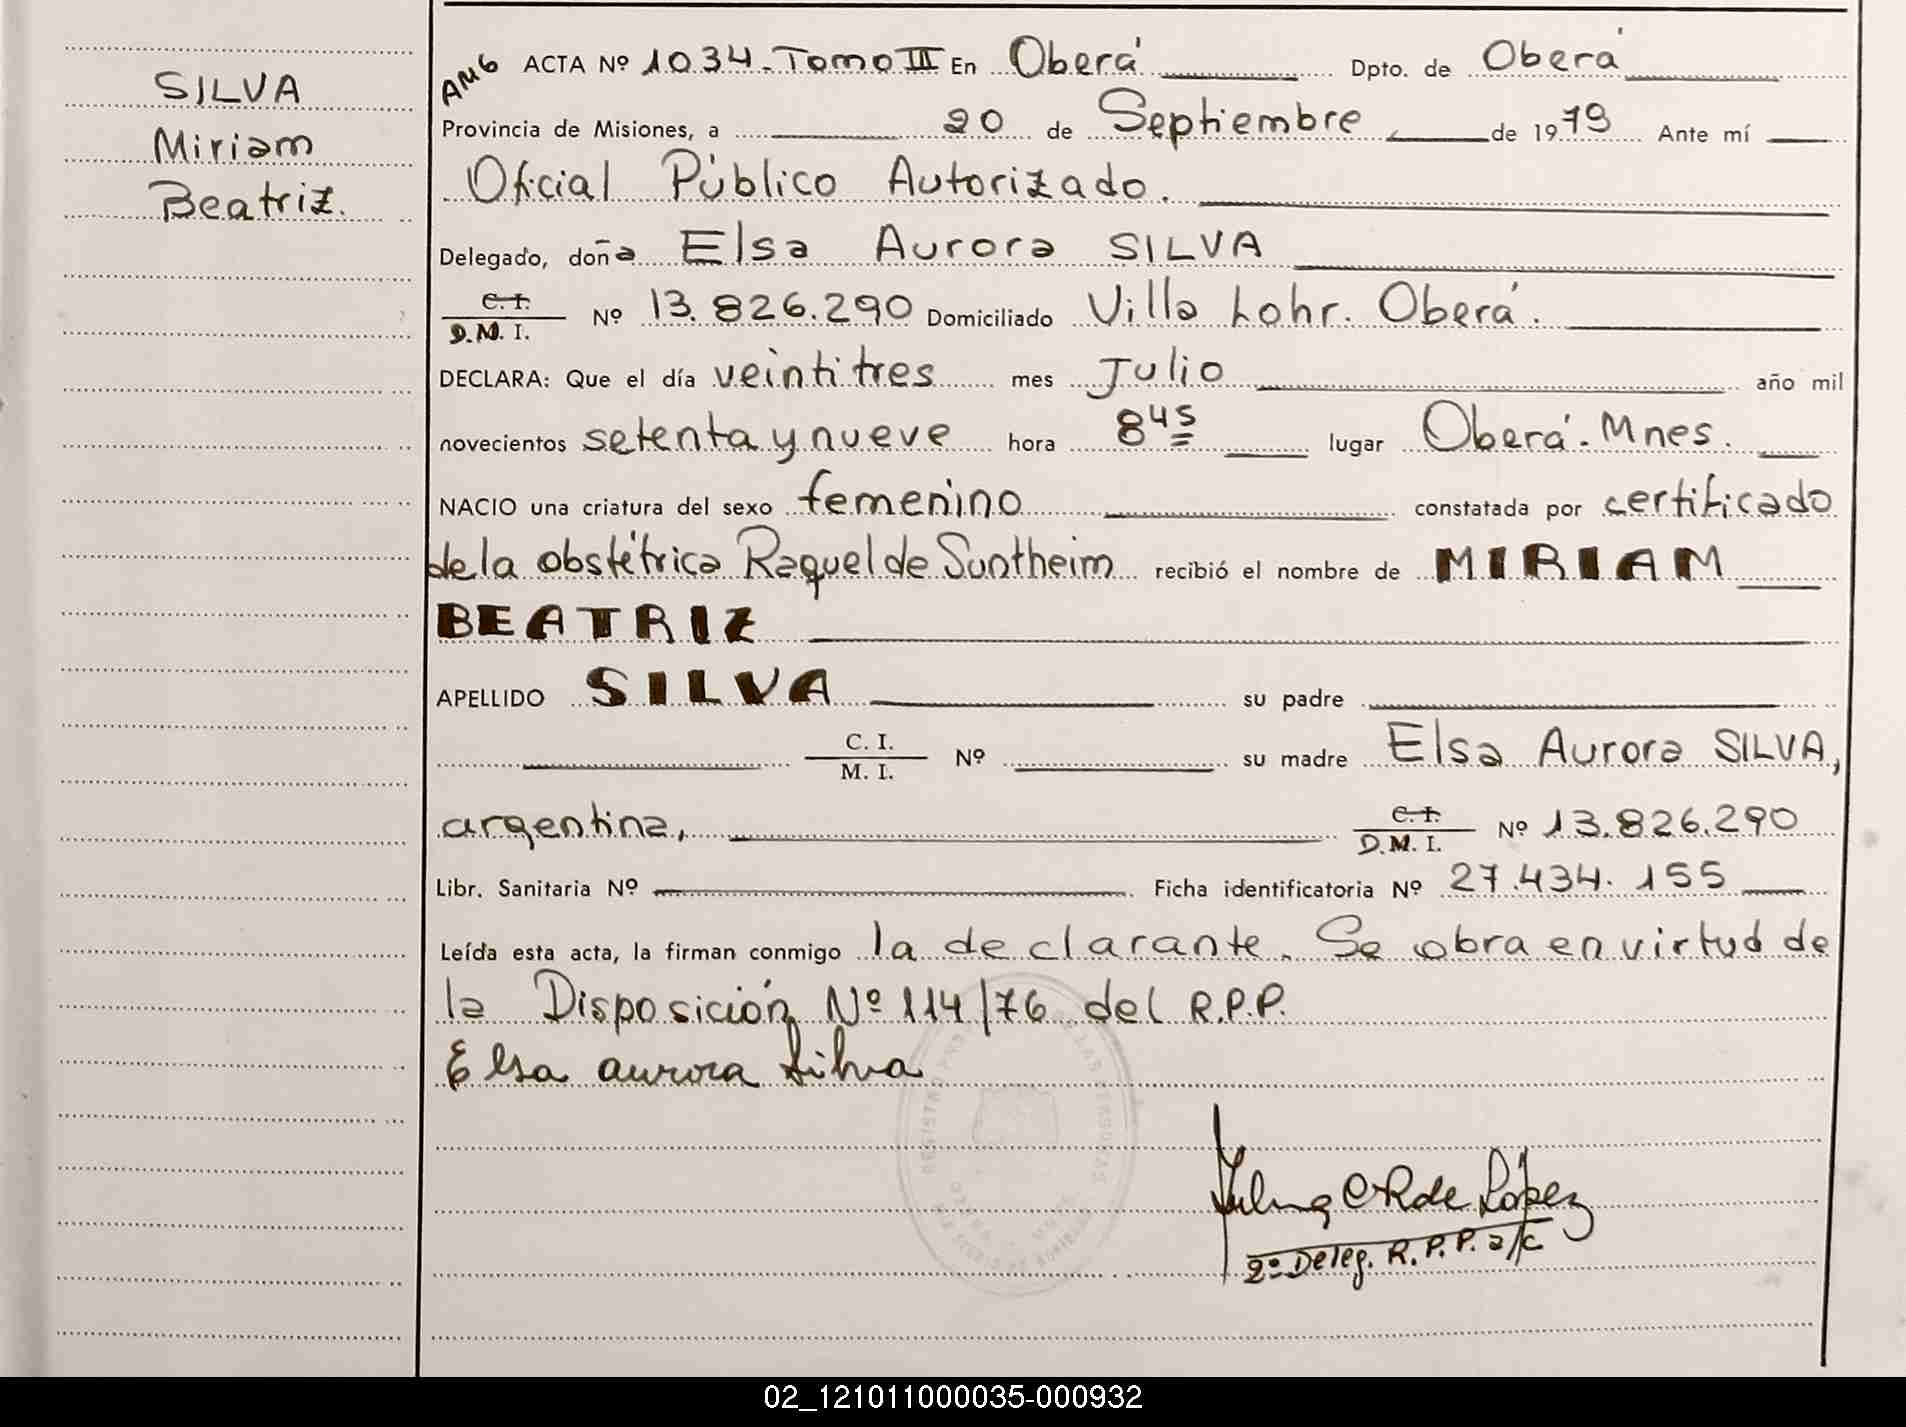 SILVA
Miriam
Beatriz.
AMG ACTA Nº 1034 - Tomo III En Oberá Dpto. de Oberá
Provincia de Misiones, a 20 de Septiembre de 1979 Ante mí
Oficial Público Autorizado.
Delegado, doña Elsa Aurora SILVA
C.I. / D.M.I. Nº 13.826.290 Domiciliado Villa Lohr. Oberá.
DECLARA: Que el día veintitres mes Julio año mil
novecientos setenta y nueve hora 8 45 lugar Oberá. Mnes.
NACIO una criatura del sexo femenino constatada por certificado
de la obstétrica Raquel de Suntheim recibió el nombre de MIRIAM
BEATRIZ
APELLIDO SILVA su padre
C. I. / M. I. Nº su madre Elsa Aurora SILVA,
argentina, C.I. / D.M.I. Nº 13.826.290
Libr. Sanitaria Nº Ficha identificatoria Nº 27.434.155
Leída esta acta, la firman conmigo la declarante. Se obra en virtud de
la Disposición Nº 114/76 del R.P.P.
Elsa aurora Silva
de López
2º Deleg. R.P.P. a/c
02_121011000035-000932